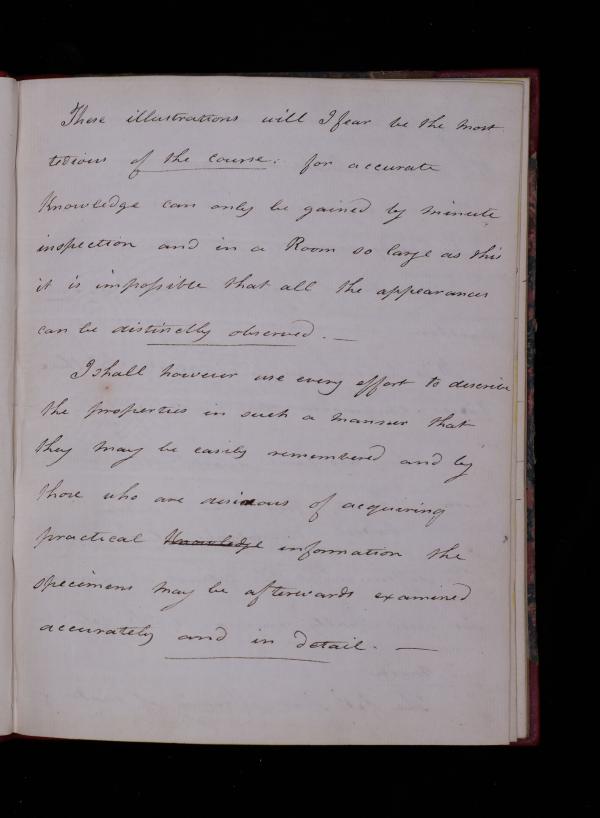 These illustrations will I fear be the most
tedious of the course: for accurate
Knowledge can only be gained by minute
inspection and in a Room so large as this
it is impossible that all the appearances
can be distinctly observed. —
I shall however use every effort to describe
the properties in such a manner that
they may be easily remembered and by
those who are desirous of acquiring
practical Knowledge information the
specimens may be afterwards examined
accurately and in detail. —